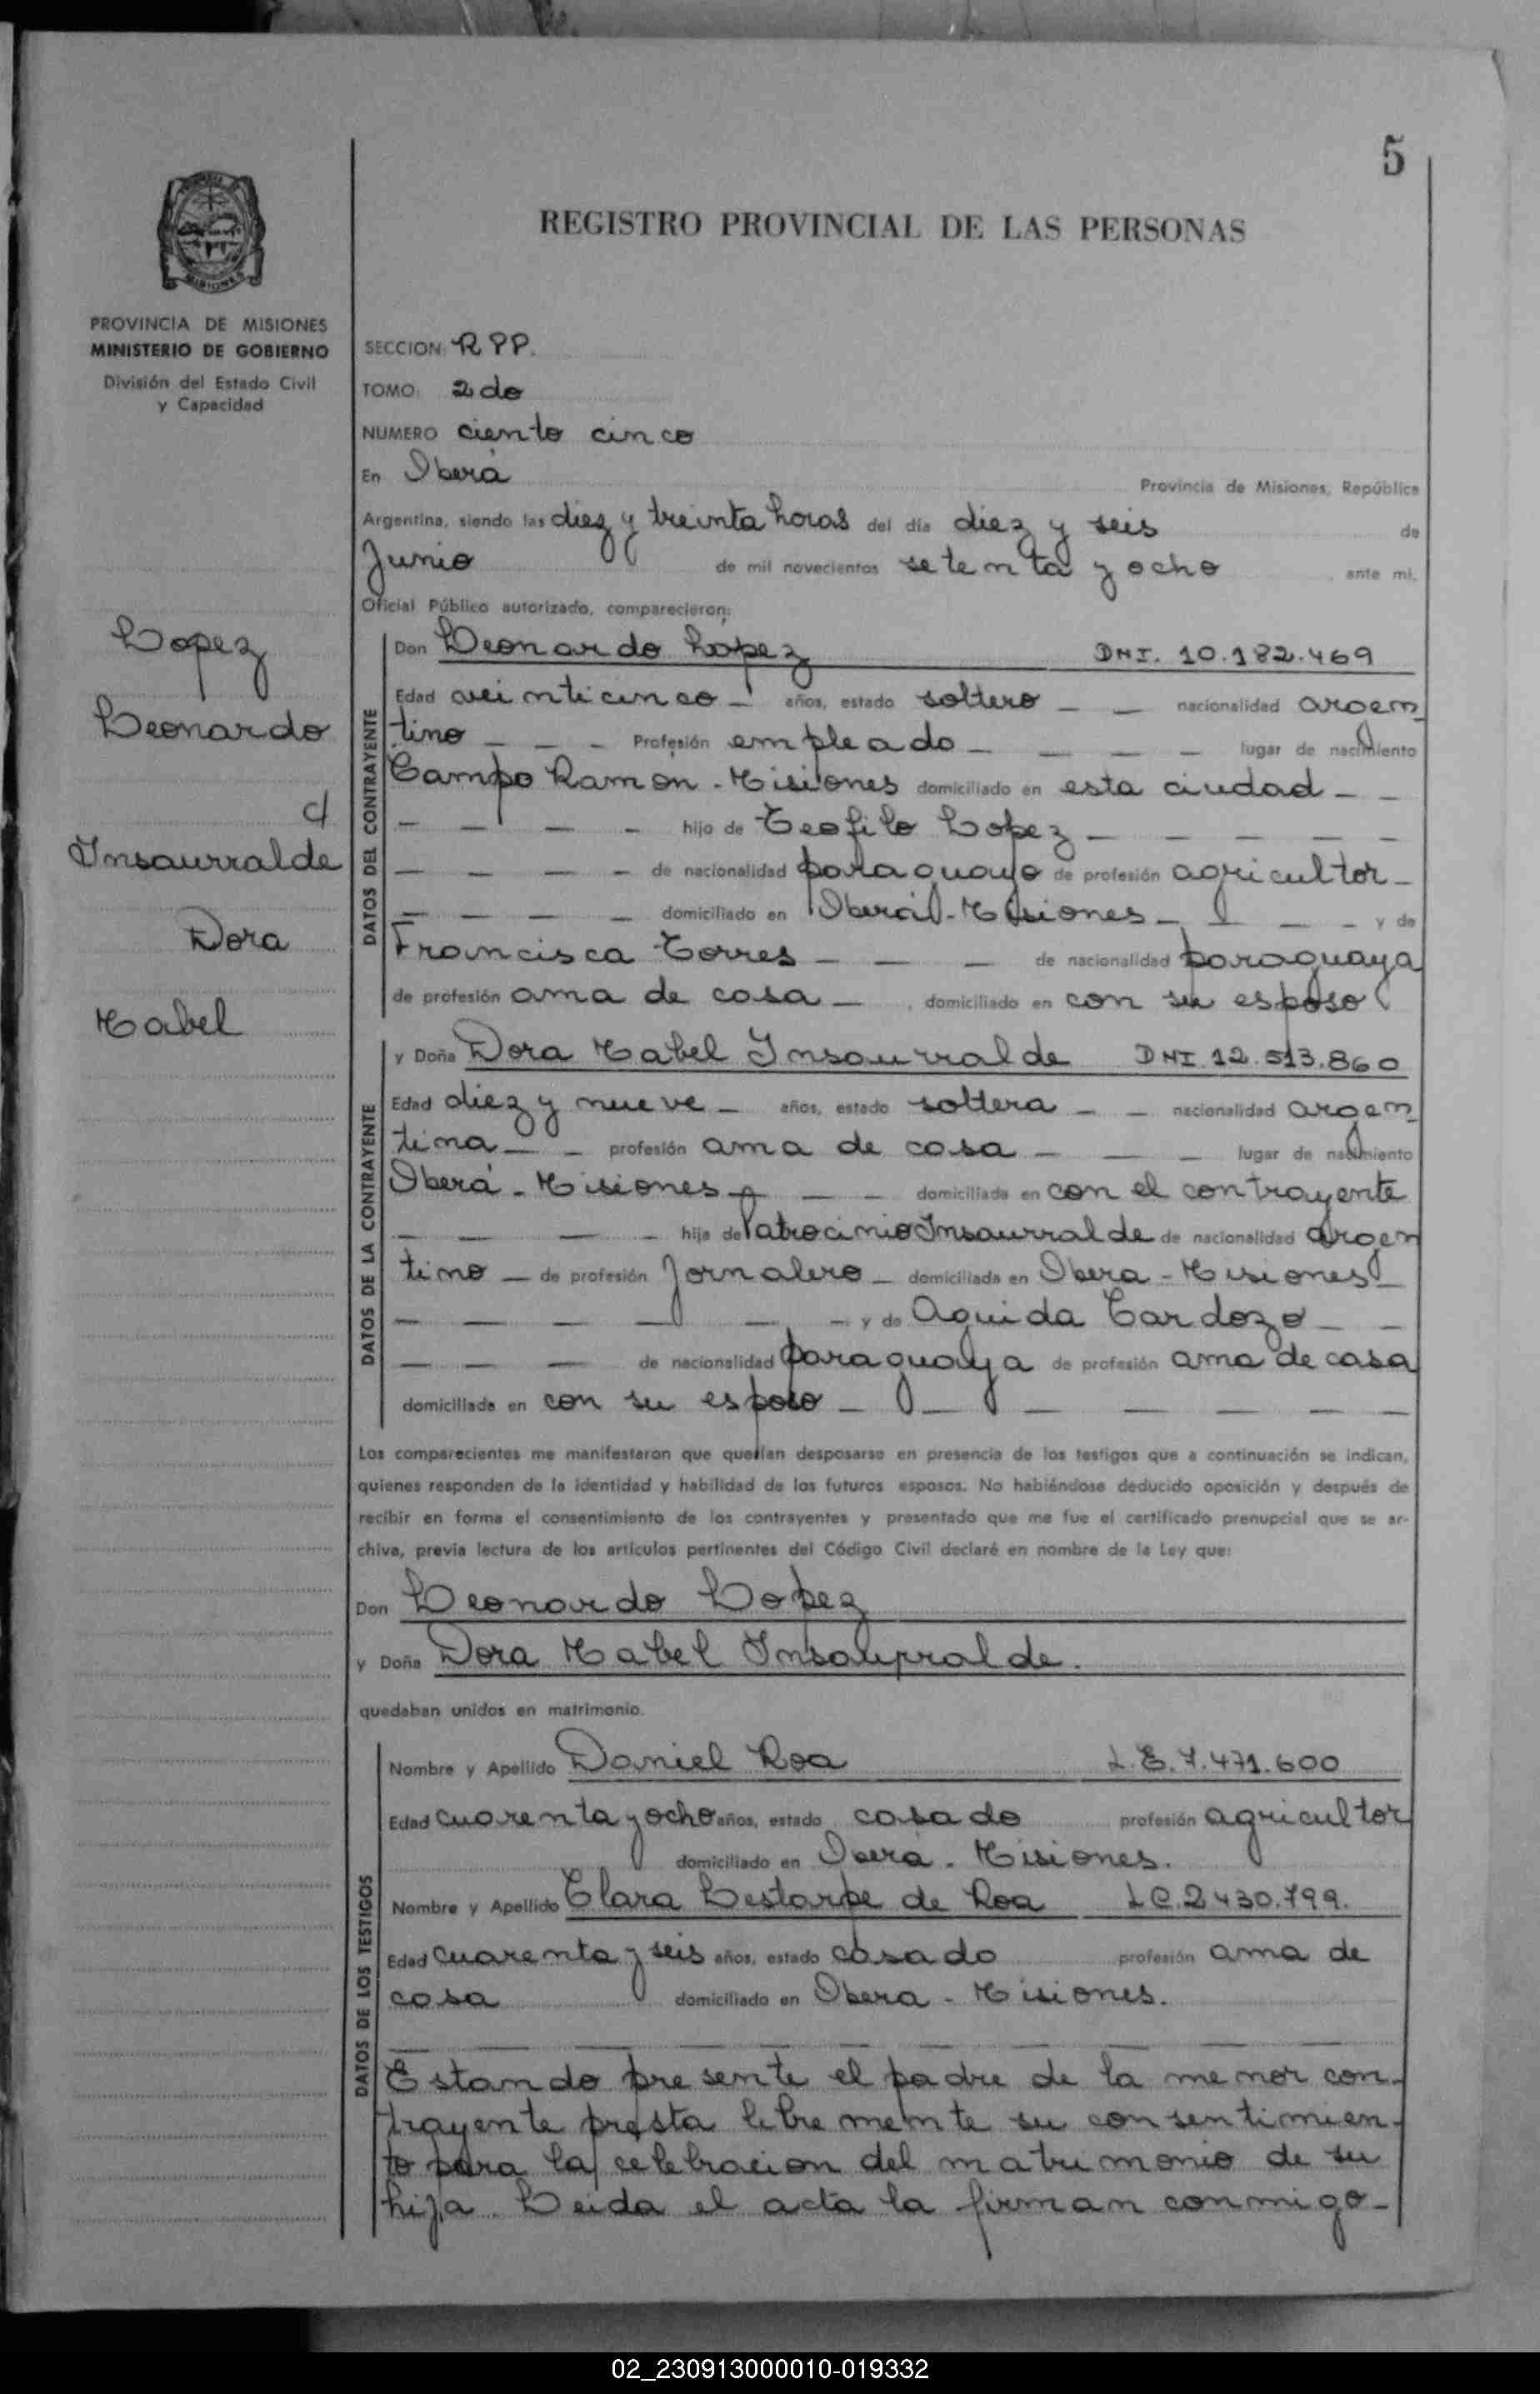 5
REGISTRO PROVINCIAL DE LAS PERSONAS
PROVINCIA DE MISIONES
MINISTERIO DE GOBIERNO
División del Estado Civil
y Capacidad
SECCION: RPP.
TOMO: 2do
NUMERO ciento cinco
En Oberá Provincia de Misiones, República
Argentina, siendo las diez y treinta horas del día diez y seis de
Junio de mil novecientos setenta y ocho ante mi,
Oficial Público autorizado, comparecieron:
Lopez
Leonardo
c/
Insaurralde
Dora
Mabel
DATOS DEL CONTRAYENTE
Don Leonardo Lopez DNI. 10.182.469
Edad veinticinco - años, estado soltero - - nacionalidad argen
tino - - - Profesión empleado - - - - lugar de nacimiento
Campo Ramon - Misiones domiciliado en esta ciudad - -
- - - - hijo de Teofilo Lopez - - - - -
- - - - de nacionalidad paraguayo de profesión agricultor -
- - - - domiciliado en Oberá - Misiones - - - - y de
Francisca Torres - - - de nacionalidad paraguaya
de profesión ama de casa - , domiciliado en con su esposo
DATOS DE LA CONTRAYENTE
y Doña Dora Mabel Insaurralde DNI. 12.513.860
Edad diez y nueve - años, estado soltera - - nacionalidad argen
tina - - profesión ama de casa - - - lugar de nacimiento
Oberá - Misiones - - - domiciliada en con el contrayente
- - - - hija de Patrocinio Insaurralde de nacionalidad argen
tino - de profesión Jornalero - domiciliada en Obera - Misiones -
- - - - - - y de Aguida Cardozo - -
- - - de nacionalidad paraguaya de profesión ama de casa
domiciliada en con su esposo - - - - - - -
Los comparecientes me manifestaron que querían desposarse en presencia de los testigos que a continuación se indican,
quienes responden de la identidad y habilidad de los futuros esposos. No habiéndose deducido oposición y después de
recibir en forma el consentimiento de los contrayentes y presentado que me fue el certificado prenupcial que se ar-
chiva, previa lectura de los artículos pertinentes del Código Civil declaré en nombre de la Ley que:
Don Leonardo Lopez
y Doña Dora Mabel Insaurralde.
quedaban unidos en matrimonio.
DATOS DE LOS TESTIGOS
Nombre y Apellido Daniel Roa L.E. 7.471.600
Edad cuarenta y ocho años, estado casado profesión agricultor
domiciliado en Oberá - Misiones.
Nombre y Apellido Clara Lestarpe de Roa L.C. 2.430.799.
Edad cuarenta y seis años, estado casado profesión ama de
casa domiciliado en Obera - Misiones.
Estando presente el padre de la menor con-
trayente presta libremente su consentimien-
to para la celebracion del matrimonio de su
hija. Leida el acta la firman conmigo -
02_230913000010-019332